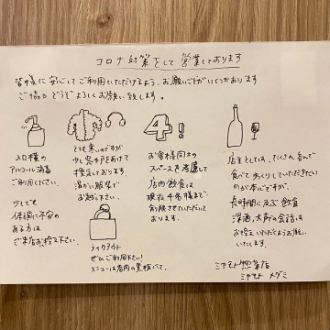 コロナ対策をして営業しております
皆様に安心してご利用いただけるよう、お願いごとがいくつかあります
ご協力どうぞよろしくお願い致します。
入口横の
アルコール消毒
ご利用ください。
少しでも
体調に不安の
ある方は
ご来店お控え下さい。
とても寒いのですが
少し窓や戸をあけて
換気しております
温かい服装で
お越し下さい。
テイクアウト
ぜひご利用下さい!
メニューは店内の黒板にて。
4!
お客様同士の
スペースを考慮して
店内飲食は
現在 4名様まで
制限させていただいて
おります。
店主としては、たくさん呑んで
食べてお喋りしていただきたい
のが本心ですが、
長時間に及ぶ飲食
深酒、大声の会話は
お控えいただくようお願い
いたします。
ミヤモト
ミヤモト メグミ